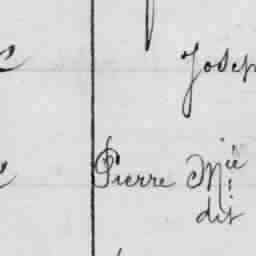 Josep
Pierre Mie
dit